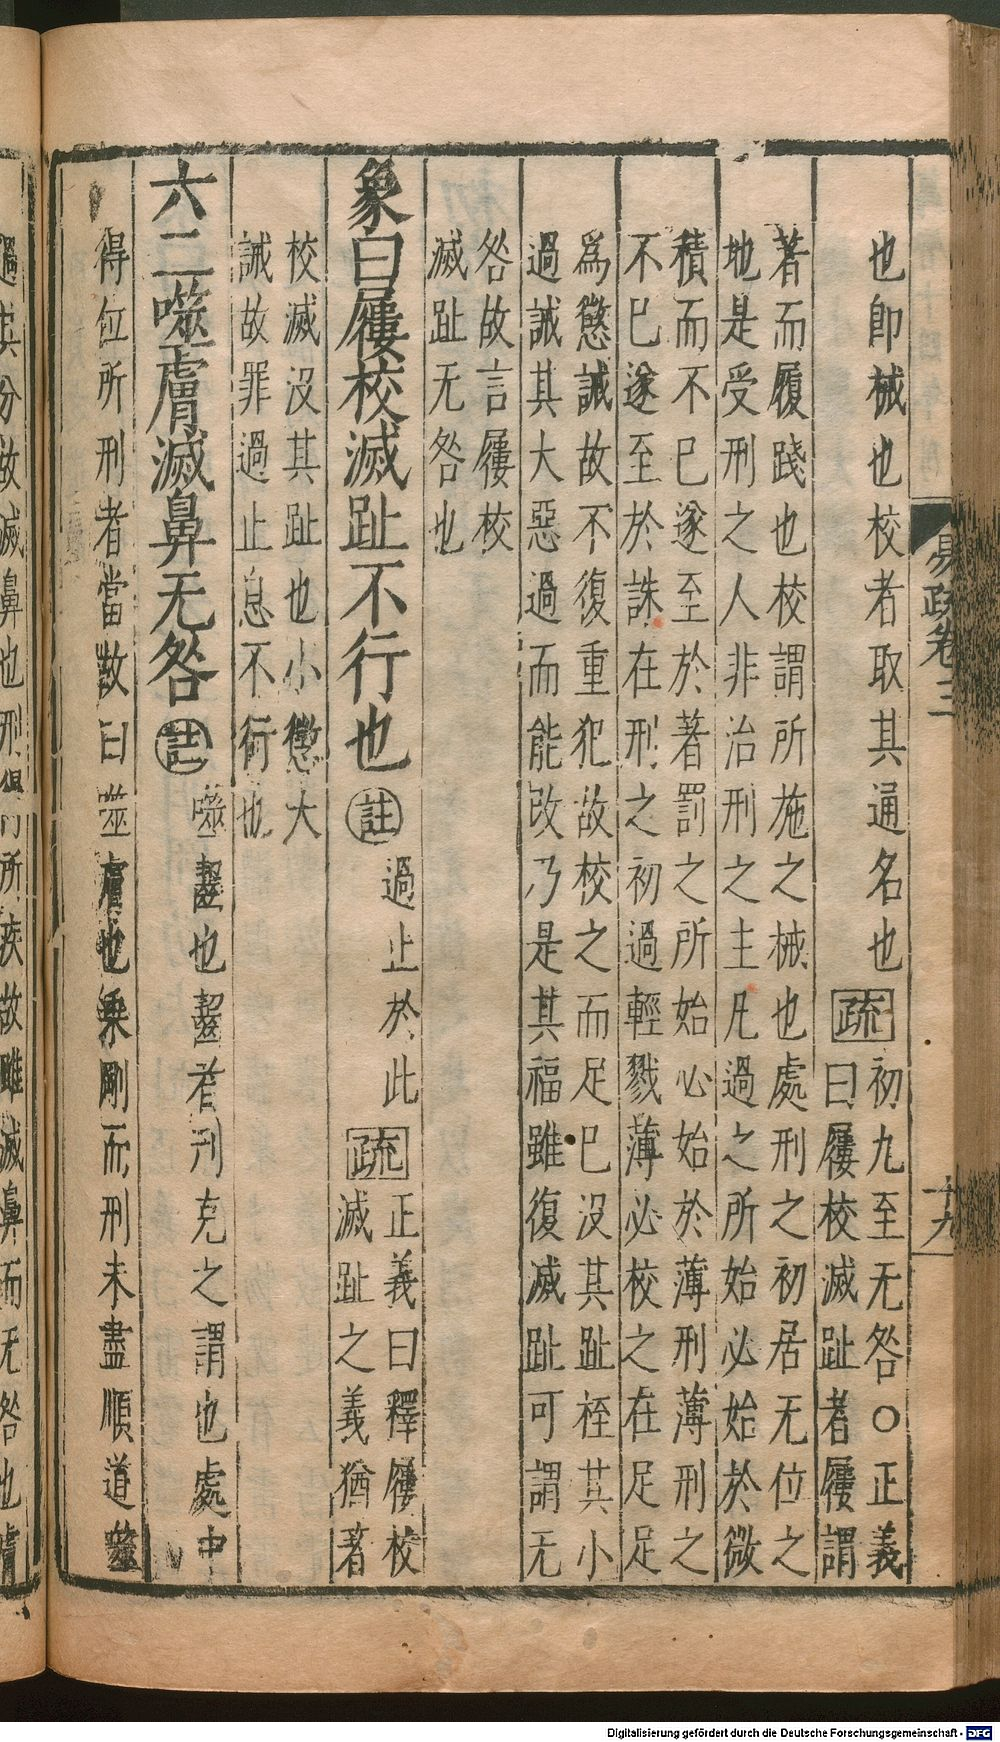 易疏卷三
十九
也卽械也校者取其通名也
疏 初九至无咎○正義
曰屨校滅趾者屨謂
著而履踐也校謂所施之械也處刑之初居无位之
地是受刑之人非治刑之主凡過之所始必始於微
積而不已遂至於著罰之所始必始於薄刑薄刑之
不已遂至於誅在刑之初過輕戮薄必校之在足足
爲懲誡故不復重犯故校之而足已没其趾桎其小
過誡其大惡過而能改乃是其福雖復滅趾可謂无
咎故言屨校
滅趾无咎也
象曰屨校滅趾不行也 註 過止於此 疏 正義曰釋屨校
滅趾之義猶著
校滅没其趾也小懲大
誡故罪過止息不行也
六二噬膚滅鼻无咎 註 噬齧也齧者刋克之謂也處中
得位所刑者當故曰噬膚也乘剛而刑未盡順道噬
分故滅鼻也刑
所疾故雖滅鼻而无咎也膚
Digitalisierung gefördert durch die Deutsche Forschungsgemeinschaft - DFG